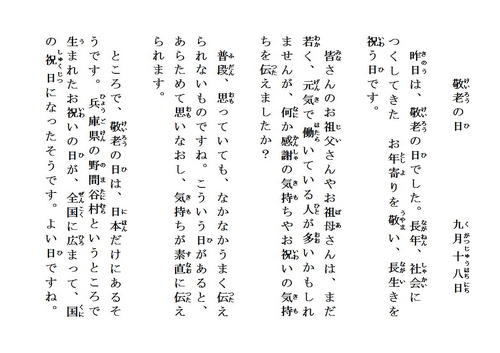 敬老の日　　　九月十八日
昨日は、敬老の日でした。長年、社会に
つくしてきた　お年寄りを敬い、長生きを
祝う日です。
皆さんのお祖父さんやお祖母さんは、まだ
若く、元気で働いている人が多いかもしれ
ませんが、何か感謝の気持ちやお祝いの気持
ちを伝えましたか？
普段、思っていても、なかなかうまく伝え
られないものですね。こういう日があると、
あらためて思いなおし、気持ちが素直に伝え
られます。
ところで、敬老の日は、日本だけにあるそ
うです。兵庫県の野間谷村というところで
生まれたお祝いの日が、全国に広まって、国
の祝日になったそうです。よい日ですね。